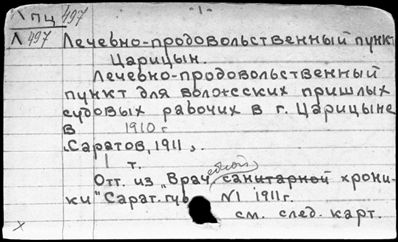 Л пц 497 -1-
Л 497 Лечебно-продовольственный пункт
Царицын.
Лечебно-продовольственный
пункт для волжских пришлых
судовых рабочих в г. Царицыне
в 1910 г
Саратов, 1911,.
1 т.
Отт. из „Врачебной санитарной хрони-
ки" Сарат. губ N1 1911г.
см. след. карт.